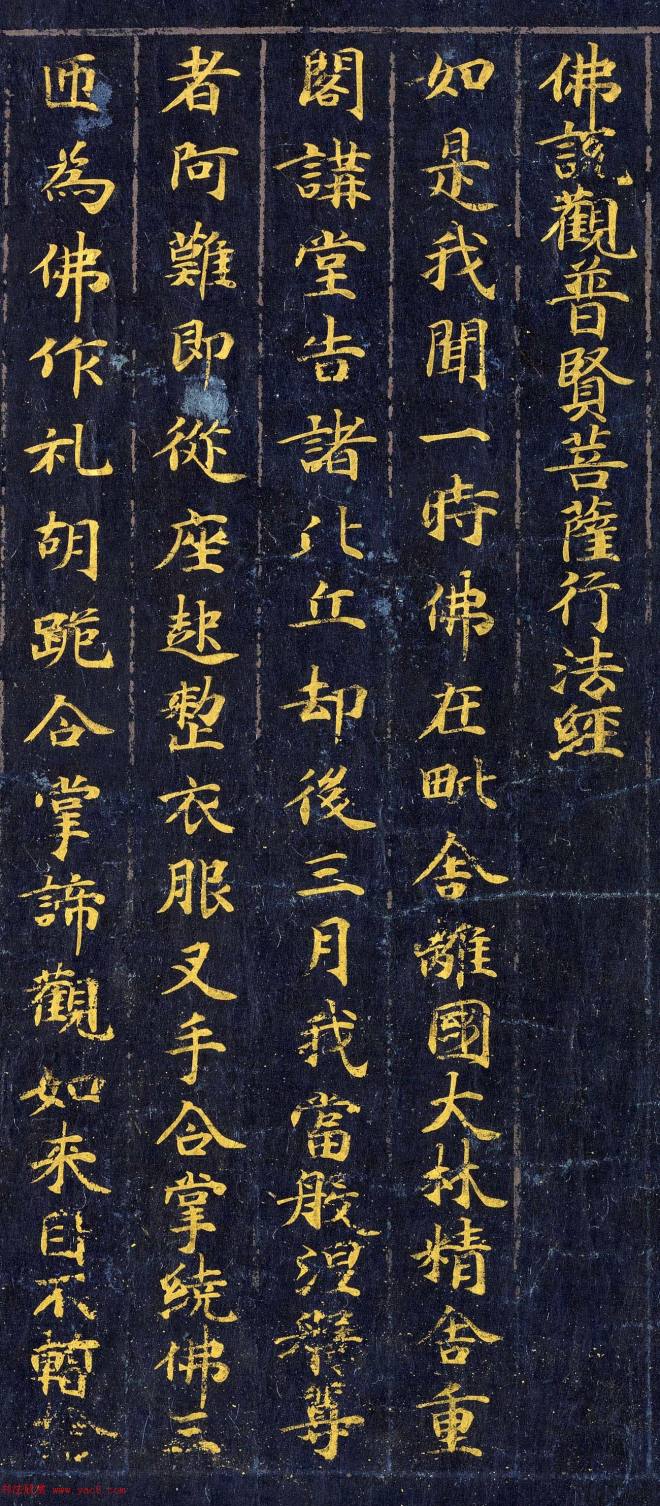 佛說觀普賢菩薩行法經
如是我聞一時佛在毗舍離國大林精舍重
閣講堂告諸比丘却後三月我當般涅槃尊
者阿難即從座起整衣服叉手合掌繞佛三
匝為佛作礼胡跪合掌諦觀如来目不暫捨
www.yac8.com